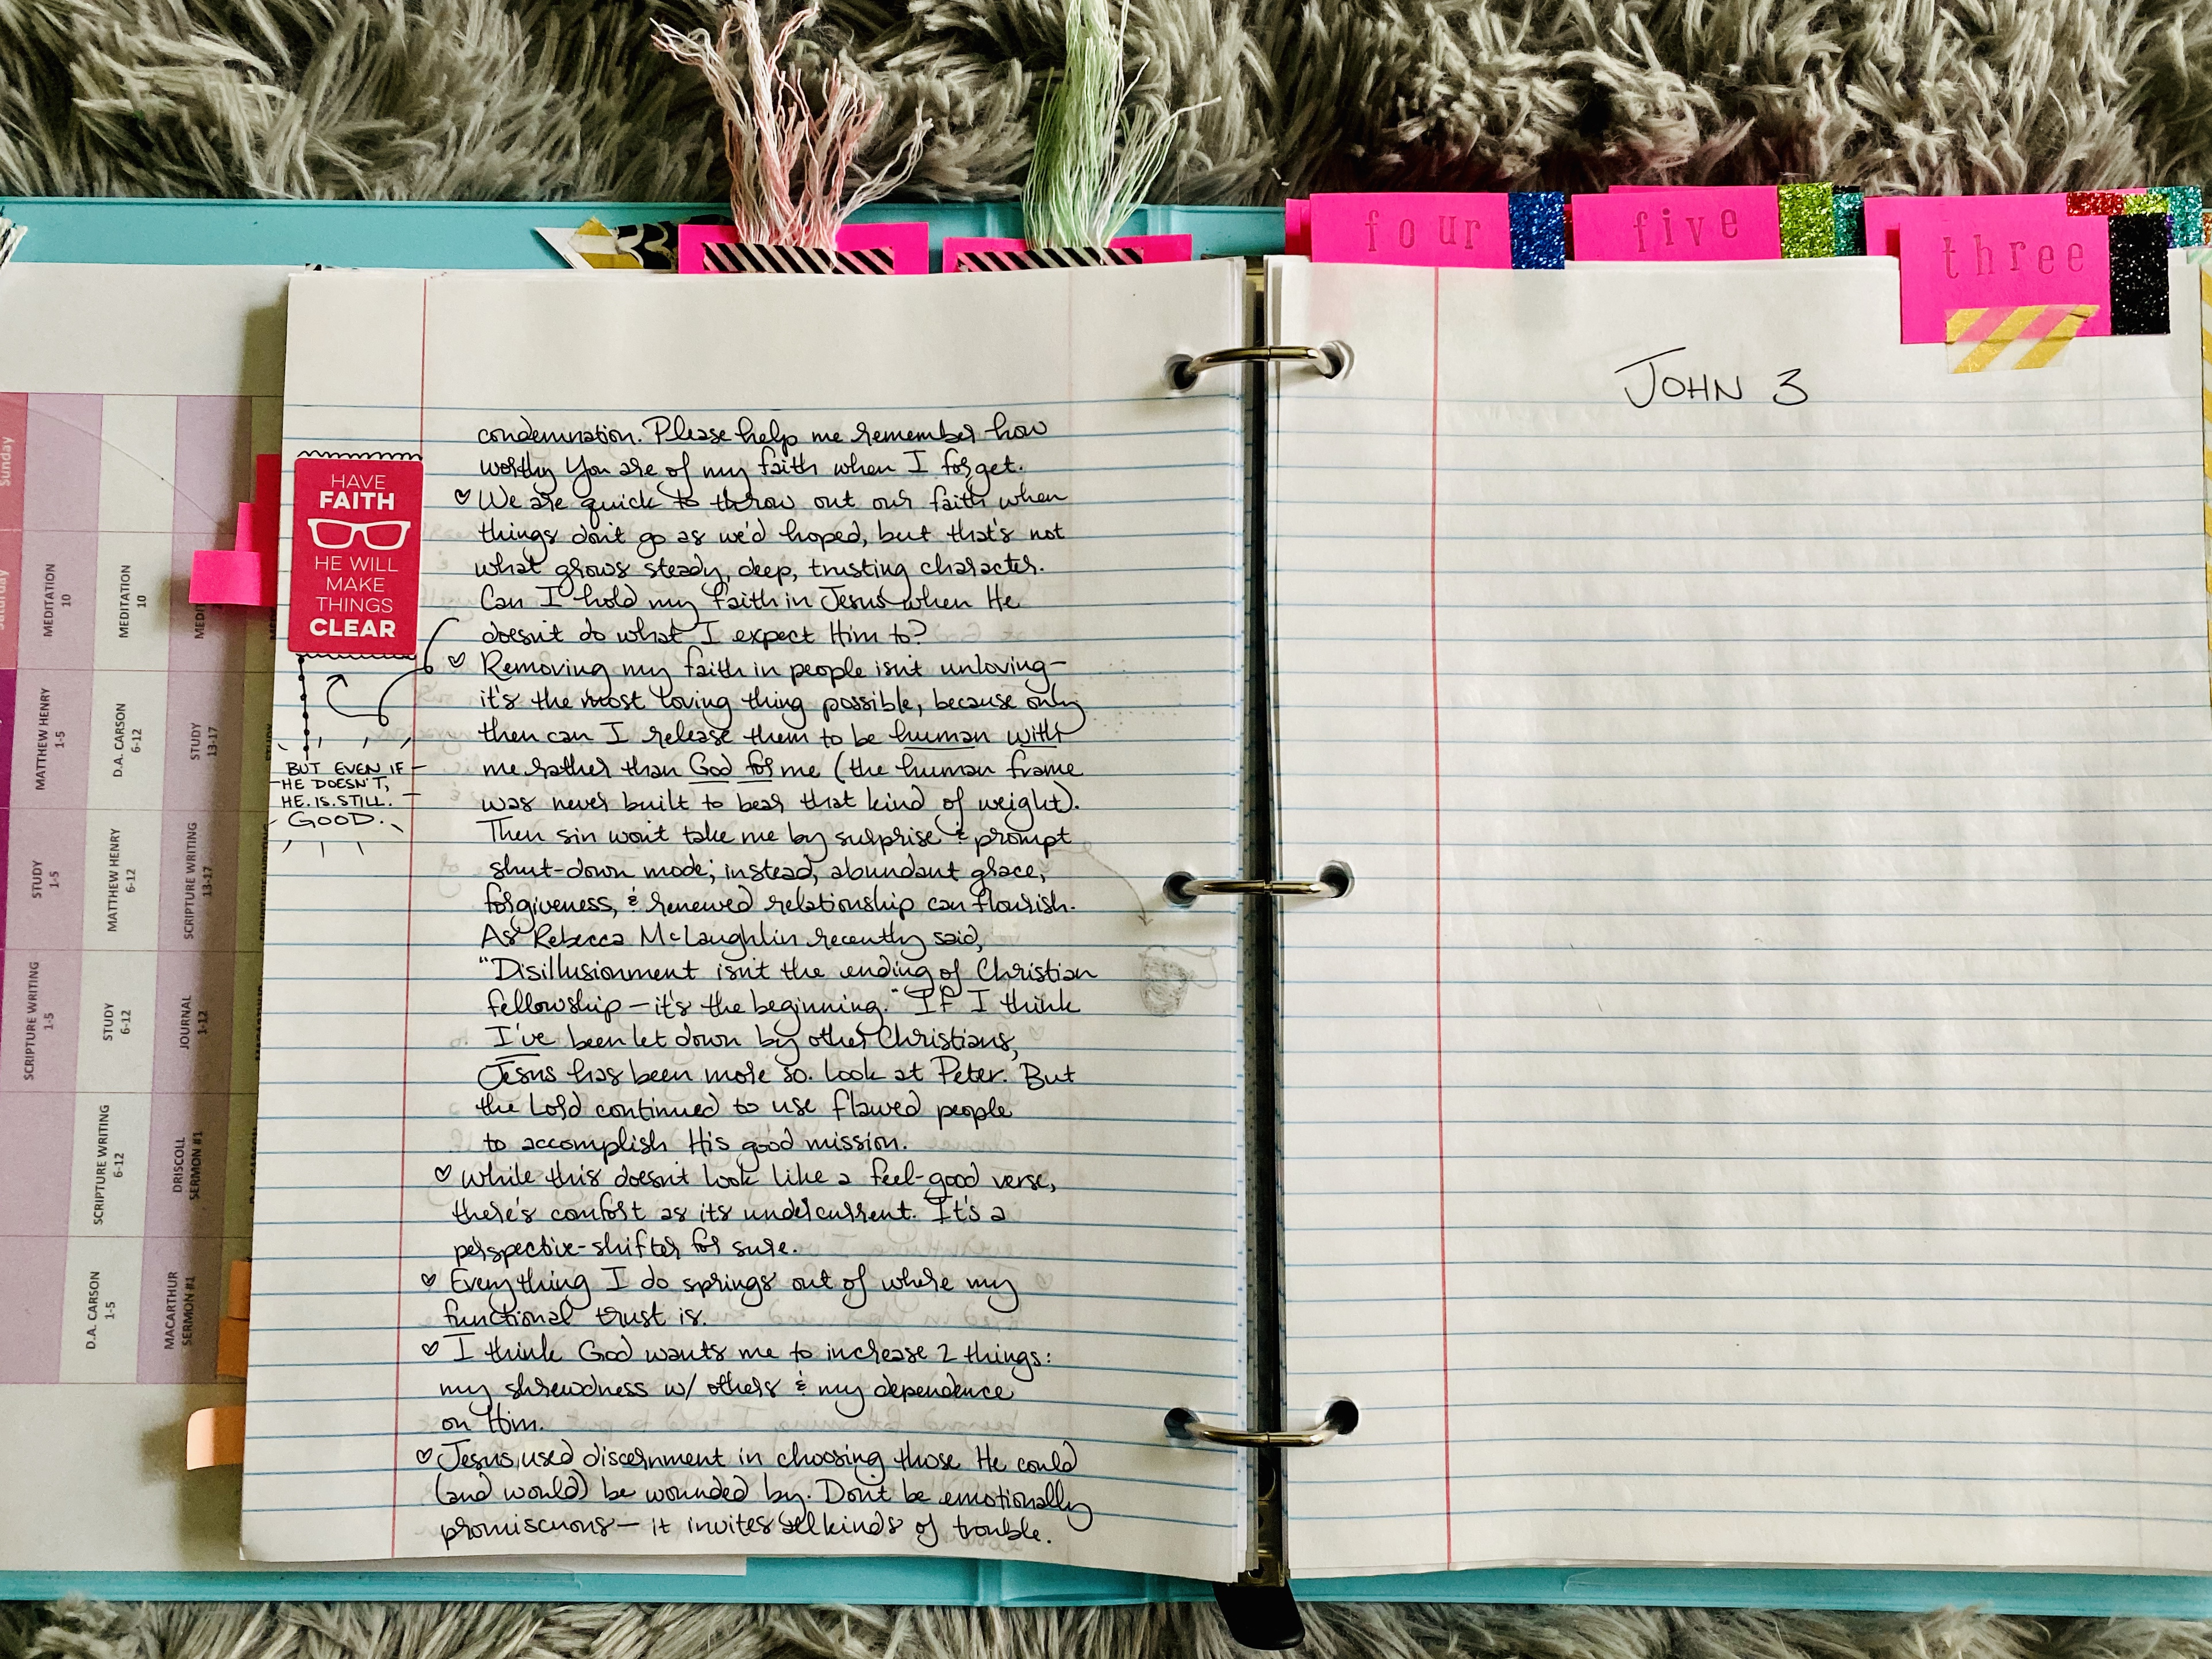 four
five
three
JOHN 3
HAVE
FAITH
HE WILL
MAKE
THINGS
CLEAR
BUT EVEN IF
HE DOESN'T,
HE.IS.STILL.
GOOD.
condemnation. Please help me remember how
worthy You are of my faith when I forget.
♡ We are quick to throw out our faith when
things don't go as we'd hoped, but that's not
what grows steady, deep, trusting character.
Can I hold my faith in Jesus when He
doesn't do what I expect Him to?
♡ Removing my faith in people isn't unloving—
it's the most loving thing possible, because only
then can I release them to be human with
me rather than God for me (the human frame
was never built to bear that kind of weight).
Then sin won't take me by surprise & prompt
shut-down mode; instead, abundant grace,
forgiveness, & renewed relationship can flourish.
As Rebecca McLaughlin recently said,
"Disillusionment isn't the ending of Christian
fellowship — it's the beginning." If I think
I've been let down by other Christians,
Jesus has been more so. Look at Peter. But
the Lord continued to use flawed people
to accomplish His good mission.
♡ While this doesn't look like a feel-good verse,
there's comfort as its undercurrent. It's a
perspective-shifter for sure.
♡ Everything I do springs out of where my
functional trust is.
♡ I think God wants me to increase 2 things:
my shrewdness w/ others & my dependence
on Him.
♡ Jesus used discernment in choosing those He could
(and would) be wounded by. Don't be emotionally
promiscuous — it invites all kinds of trouble.
Sunday
Saturday
MEDITATION
10
MATTHEW HENRY
1-5
STUDY
1-5
SCRIPTURE WRITING
1-5
MEDITATION
10
D.A. CARSON
6-12
MATTHEW HENRY
6-12
STUDY
6-12
SCRIPTURE WRITING
6-12
D.A. CARSON
1-5
STUDY
13-17
SCRIPTURE WRITING
13-17
JOURNAL
1-12
DRISCOLL
SERMON #1
MACARTHUR
SERMON #1